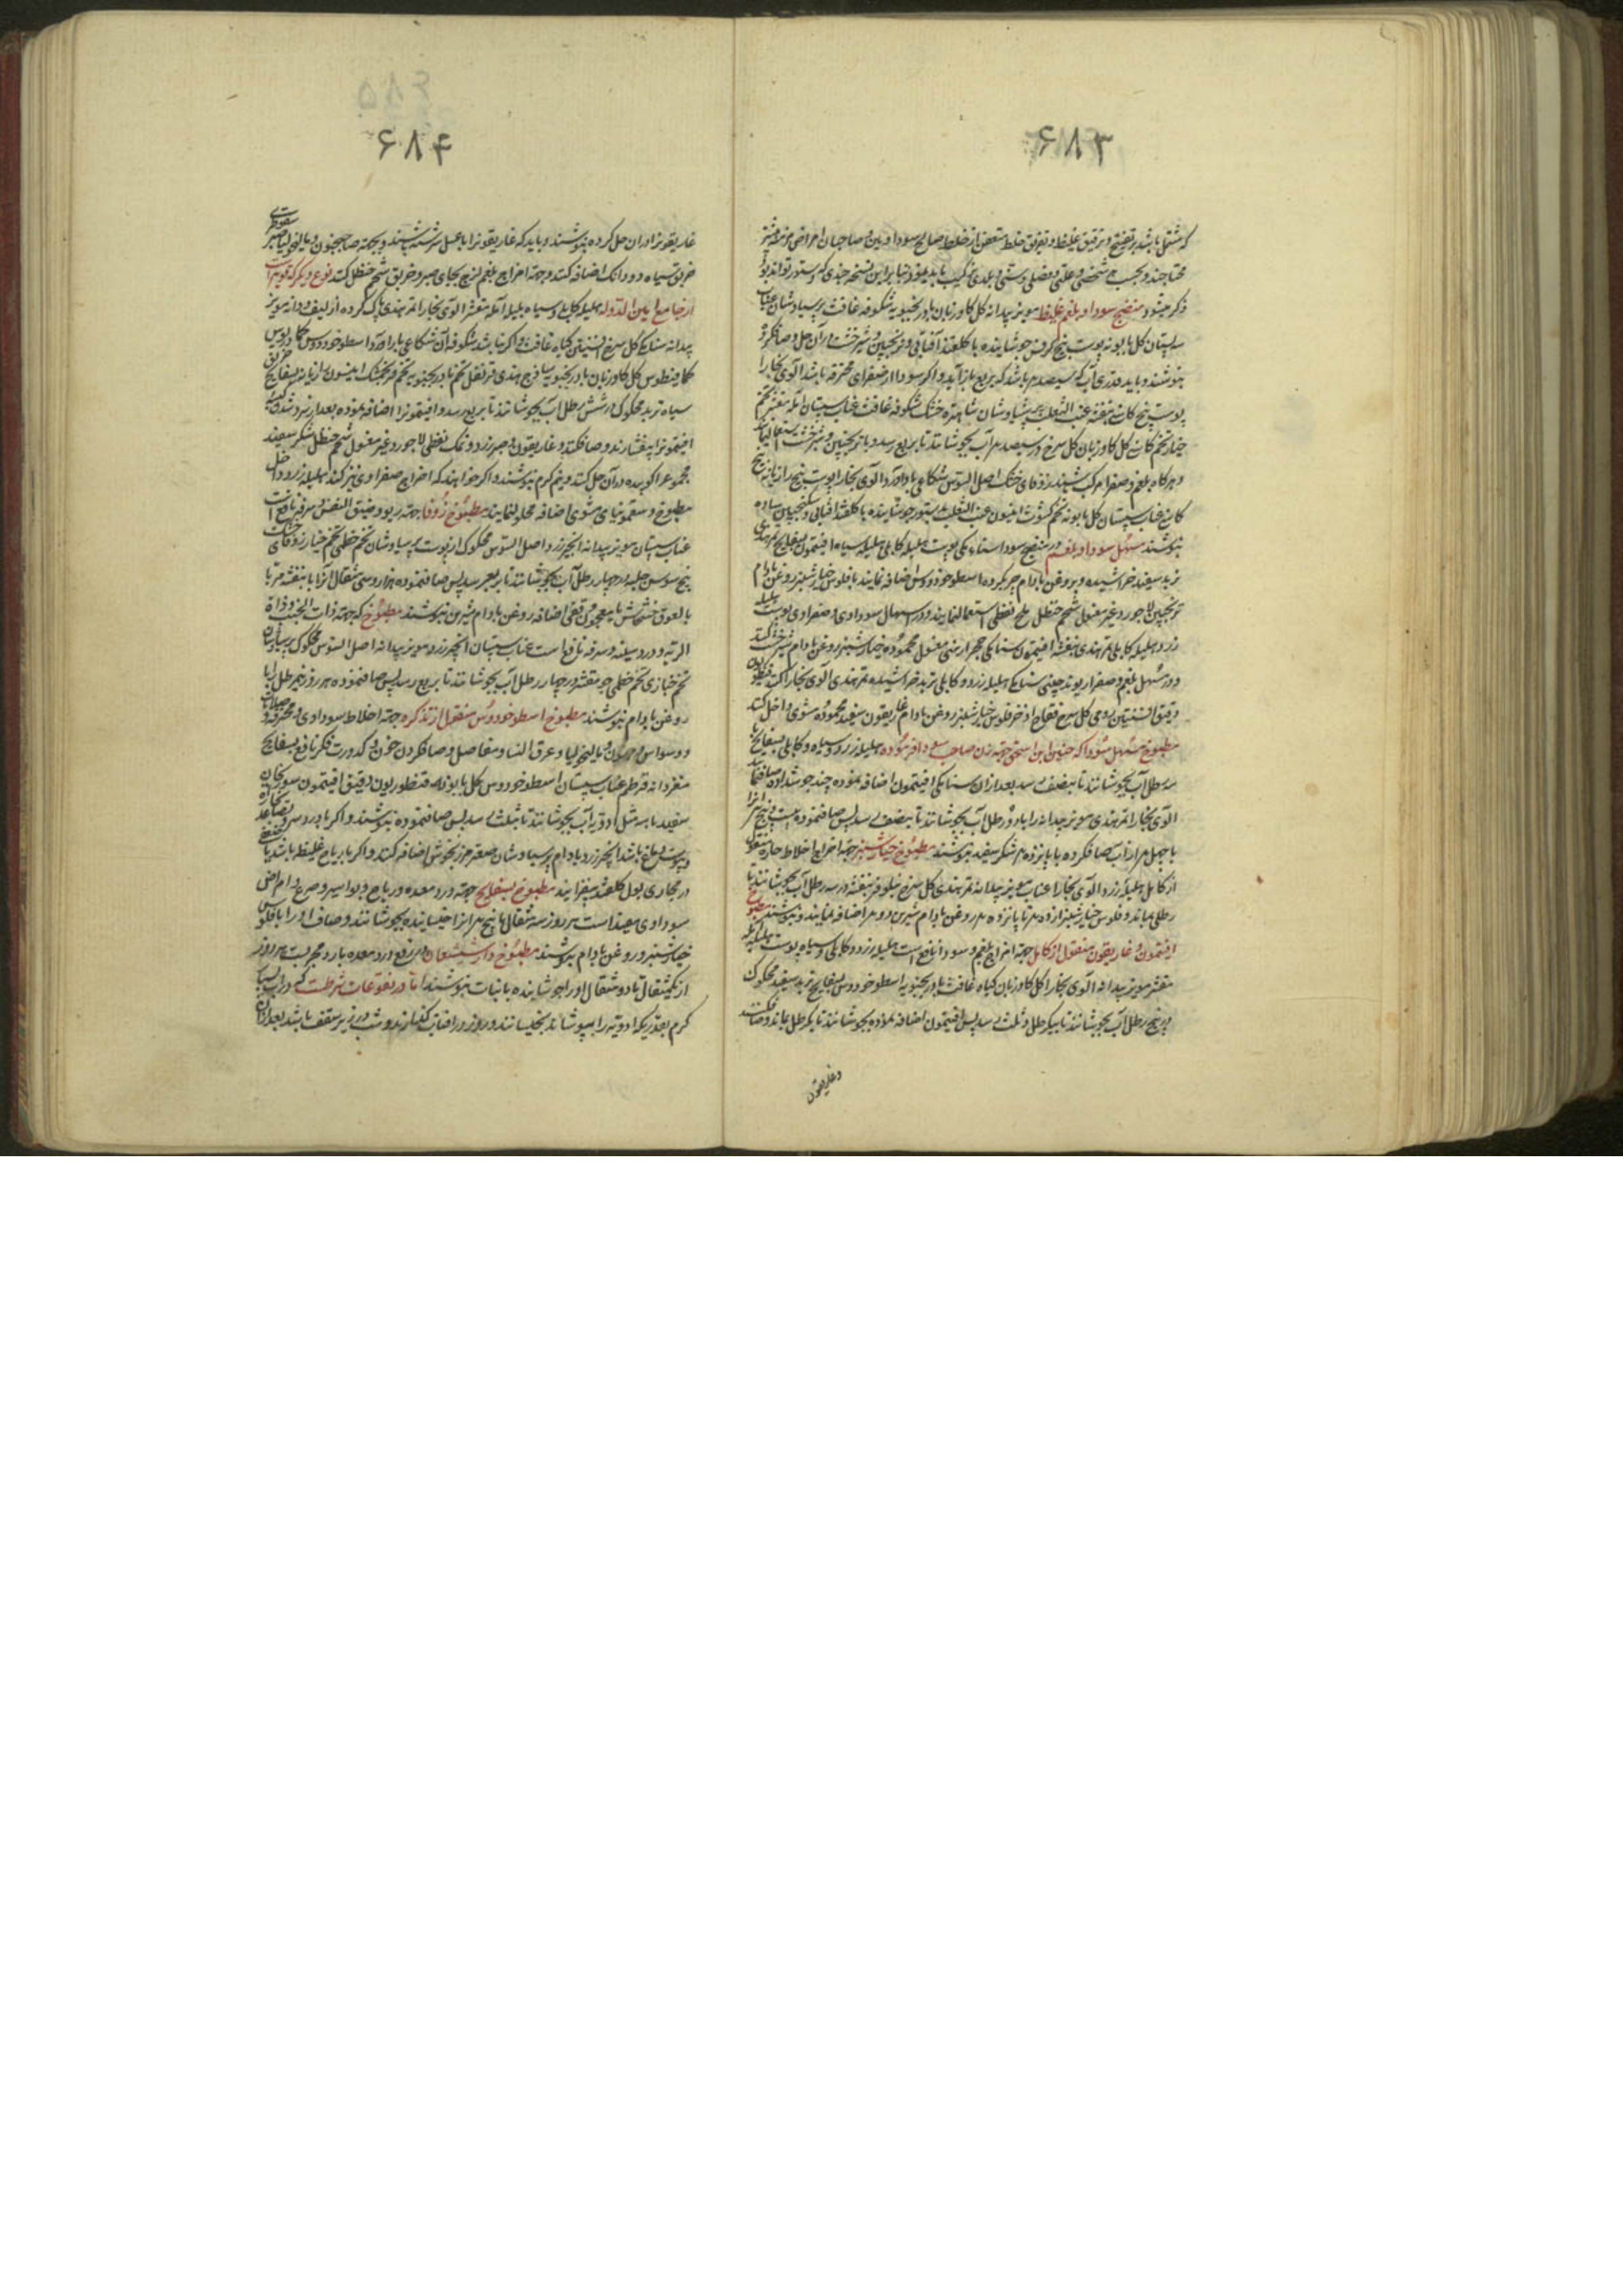 ۶۸۳
که مشتمل باشد بر تنضیج و ترقیق غلیظ و تفریق خلط متعفن از خلط صالح و سوداویین و صاحبان امراض مزمنه
محتاجند و بحسب هر شخصی و علتی و فصلی و سنی و بلدی ترکیب باید نمود و بنابراین نسخه چندی که دستور تواند بود
ذکر میشود منضج سودا و بلغم غلیظ مویز بیدانه گل گاوزبان بادرنجبویه شکوفه غافث پرسیاوشان عناب
سپستان گل بابونه پوست بیخ کرفس جوشانیده با گلقند آفتابی و ترنجبین و شیرخشت در آن حل و صاف کرده
بنوشند و باید قدری آب که سیصد درم باشد که بربع باز آید و اگر سودا از صفرای محترقه باشد آلوی بخارا
پوست بیخ کاسنی بنفشه عنب الثعلب پرسیاوشان شاهتره خشک شکوفه غافث عناب سپستان آمله مقشر تخم
خیار تخم کاسنی گل گاوزبان گل سرخ در سیصد درم آب بجوشانند تا بربع رسد و با ترنجبین و شیرخشت استعمال نمایند
و هرگاه بلغم و صفرا مرکب باشند زوفای خشک اصل السوس شکاعی باداورد آلوی بخارا پوست بیخ رازیانه بیخ
کاسنی عناب سپستان گل بابونه تخم کشوث انیسون عنب الثعلب بدستور جوشانیده با گلقند آفتابی و سکنجبین ساده
بنوشند مسهل سودا و بلغم در منضج سودا سنا مکی پوست هلیله کابلی هلیله سیاه افتیمون بسفایج تمر هندی
تربد سفید خراشیده و بروغن بادام چرب کرده اسطوخودوس اضافه نمایند با فلوس خیارشنبر روغن بادام
ترنجبین لاجورد غیر مغسول شحم حنظل ملح نفطی استعمال نمایند و در اسهال سوداوی و صفراوی پوست هلیله
زرد و هلیله کابلی تمر هندی بنفشه افتیمون سنا مکی حجر ارمنی مغسول محموده خیارشنبر روغن بادام شیرخشت کنند
و در مسهل بلغم و صفرا ریوند چینی سنا مکی هلیله زرد و کابلی تربد خراشیده تمر هندی آلوی بخارا اکث قنطوریون
دقیق افسنتین رومی گل سرخ فقاح اذخر فلوس خیارشنبر روغن بادام غاریقون سفید محموده مشوی داخل کنند
مطبوخ مسهل سودا که حنین ابن اسحق جهة زن صاحب سودا فرموده هلیله زرد و سیاه و کابلی بسفایج
سه رطل آب بجوشانند تا بنصف رسد بعد از آن سنا مکی افتیمون اضافه نموده چند جوش داده صاف نمایند
آلوی بخارا تمر هندی مویز بیدانه را با دو رطل آب بجوشانند تا بنصف رسد پس صاف نموده بیست و پنج درم
با چهل درم از آب صاف کرده با پانزده درم شکر سفید بنوشند مطبوخ خیارشنبر جهة اخراج اخلاط حاره منقول
از کامل هلیله زرد آلوی بخارا عناب مویز بیدانه تمر هندی گل سرخ نیلوفر بنفشه در سه رطل آب بجوشانند تا
رطلی بماند و فلوس خیارشنبر از ده درم تا پانزده درم روغن بادام شیرین دو درم اضافه نمایند و بنوشند مطبوخ
افتیمون غاریقون منقول از کامل جهة اخراج بلغم و سودا نافع است هلیله زرد و کابلی و سیاه پوست بلیله آمله
مقشر مویز بیدانه آلوی بخارا گل گاوزبان گیاه غافث بادرنجبویه اسطوخودوس بسفایج تربد سفید محکوک
در پنج رطل آب بجوشانند تا بیکرطل و ثلث رسد پس افتیمون اضافه نموده بجوشانند تا یکرطل بماند و صاف کنند
و غاریقون
۶۸۴
غاریقونرا در آن حل کرده بنوشند و باید که غاریقونرا با عسل سرشته باشند و بجهة صاحب جنون و مالیخولیا صبر سقوطری
خربق سیاه دو دانک اضافه کنند و جهة اخراج بلغم لزج بجای صبر و خربق شحم حنظل کنند نوع دیگر که قویتر است
از جامع امین الدوله هلیله کابلی و سیاه بلیله آمله مقشر آلوی بخارا تمر هندی پاک کرده از لیف و دانه مویز
بیدانه سنا مکی گل سرخ افسنتین گیاه غافث و اگر نباشد شکوفه آن شکاعی باداورد اسطوخودوس کمادریوس
کمافیطوس گل گاوزبان بادرنجبویه ساذج هندی قرنفل تخم بادرنجبویه تخم فرنجمشک انیسون رازیانه بسفایج خربق
سیاه تربد محکوک در شش رطل آب بجوشانند تا بربع رسد و افتیمونرا اضافه نموده بعد از سرد شدن
افتیمونرا بیفشارند و صاف کنند و غاریقون و صبر زرد و نمک نفطی لاجورد غیر مغسول شحم حنظل شکر سفید
مجموع را کوبیده در آن حل کنند و نیم گرم بنوشند و اگر خواهند که اخراج صفرا وی نیز کند هلیله زرد داخل
مطبوخ و سقمونیای مشوی اضافه محلول نمایند مطبوخ زوفا جهة ربو و ضیق النفس و سرفه نافع است
عناب سپستان مویز بیدانه انجیر زرد اصل السوس محکوک از پوست پرسیاوشان تخم خطمی تخم خیار زوفای خشک
بیخ سوسن حلبه در چهار رطل آب بجوشانند تا بربع رسد پس صاف نموده هر روز سی مثقال آنرا با بنفشه مربا
یا لعوق خشخاش یا معجون قفی اضافه روغن بادام شیرین بنوشند مطبوخ که جهة ذات الجنب و ذات
الریه و درد سینه و سرفه نافع است عناب سپستان انجیر زرد مویز بیدانه اصل السوس محکوک پرسیاوشان
تخم خبازی تخم خطمی جو مقشر در چهار رطل آب بجوشانند تا بربع رسد پس صاف نموده هر روز نیم رطل با
روغن بادام بنوشند مطبوخ اسطوخودوس منقول از تذکره جهة اخلاط سوداوی و محترقه و صلابات
و وسواس و جنون و مالیخولیا و عرق النسا و مفاصل و صاف کردن خون و کدورت فکر نافع بسفایج
مغز دانه قرطم عناب سپستان اسطوخودوس گل بابونه قنطوریون دقیق افتیمون سورنجان
سفید با سه مثل ادویه آب بجوشانند تا بثلث رسد پس صاف نموده بنوشند و اگر با درد سر و
یبوست دماغ باشد انجیر زرد بادام پرسیاوشان صعتر مرزنجوش اضافه کنند و اگر با ریاح غلیظه باشد یا
در مجاری بول گلقند بیفزایند مطبوخ بسفایج جهة درد معده و ریاح و بواسیر و صرع و امراض
سوداوی مفید است هر روز سه مثقال تا پنج درم آنرا خیسانیده بجوشانند و صاف او را با فلوس
خیارشنبر و روغن بادام بنوشند مطبوخ دارشیشعان در رفع درد معده بارد مجربست هر روز
از یکمثقال تا دو مثقال او را جوشانیده با نبات بنوشند اما در نقوعات شرطست که در آب بسیار
گرم بعد از آنکه ادویه را بپوشاند بخیسانند و روز در آفتاب گذارند و شب در زیر سقف باشد بعد از آن